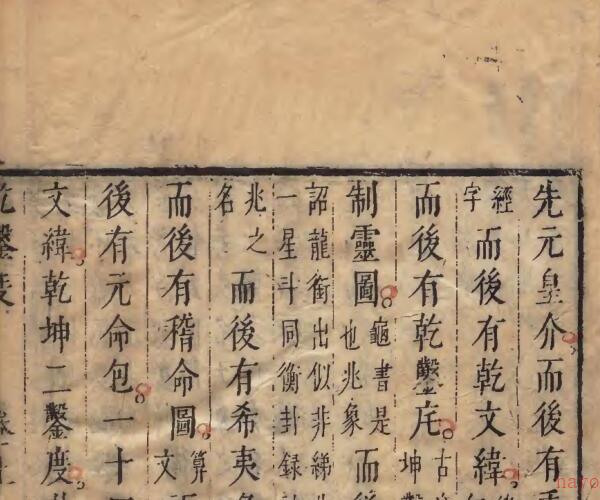 先元皇介而後有
經字而後有乾文緯
而後有乾鑿度古坤
制靈圖龜書是也兆象而
詔龍銜出似非緯一星斗同衡卦録
兆之名而後有希夷
而後有稽命圖算文
後有元命包一十
文緯乾坤二鑿度
乾鑿度
nayo